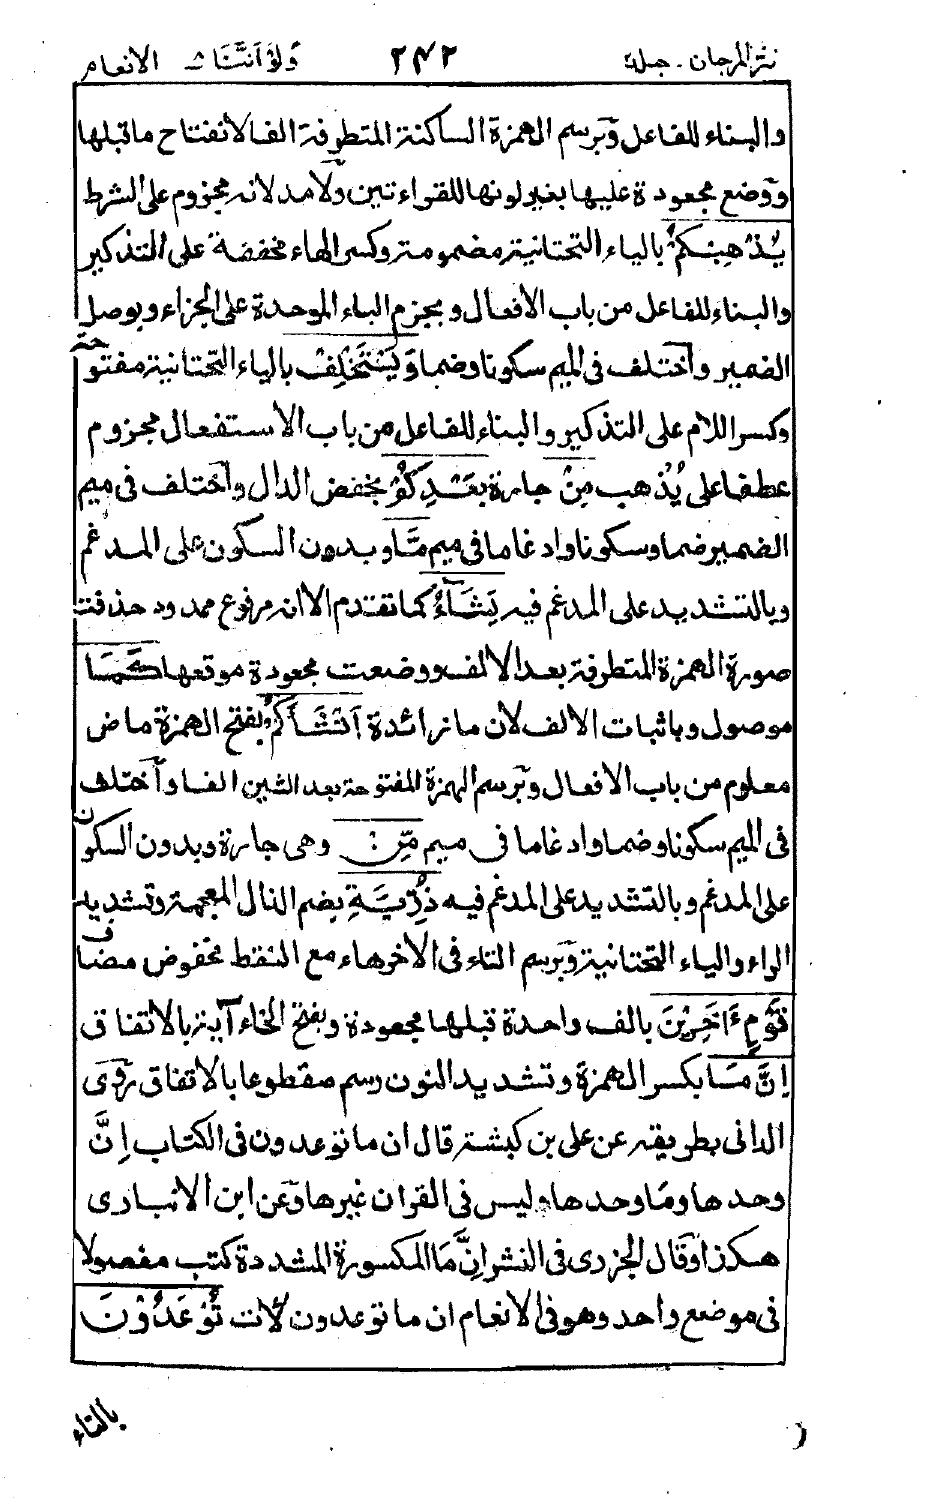 نثر المرجان - جلد ٢٤٢ ولو اننا ٨ الانعام
والبناء للفاعل وبرسم الهمزة الساكنة المتطرفة الفا لانفتاح ماقبلها
ووضع مجعودة عليها بغير لونها للقراءتين ولامد لانه مجزوم على الشرط
يُذْهِبْكُمْ بالياء التحتانية مضمومة وكسر الهاء مخففة على التذكير
والبناء للفاعل من باب الأفعال وبجزم الباء الموحدة على الجزاء وبوصل
الضمير واختلف فى الميم سكونا وضما وَيَسْتَخْلِفْ بالياء التحتانية مفتوحة
وكسر اللام على التذكير والبناء للفاعل من باب الاستفعال مجزوم
عطفا على يُذْهِب مِنْ جارة بَعْدِكُمْ بخفض الدال واختلف فى ميم
الضمير ضما وسكونا وادغاما فى ميم مَّا وبدون السكون على المدغم
وبالتشديد على المدغم فيه يَشَآءُ كما تقدم الاانه مرفوع ممدود حذفت
صورة الهمزة المتطرفة بعد الالف ووضعت مجعودة موقعها كَمَا
موصول وباثبات الالف لان ما زائدة أَنْشَأَكُمْ بفتح الهمزة ماض
معلوم من باب الافعال وبرسم الهمزة المفتوحة بعد الشين الفا واختلف
فى الميم سكونا وضما وادغاما فى ميم مِّنْ وهى جارة وبدون السكون
على المدغم وبالتشديد على المدغم فيه ذُرِّيَّةِ بضم الذال المعجمة وتشديد
الراء والياء التحتانية وبرسم التاء فى الاخر هاء مع النقط مخفوض مضاف
قَوْمٍ ءَاخَرِيْنَ بالف واحدة قبلها مجعودة وبفتح الخاء آية بالاتفاق
اِنَّ مَا بكسر الهمزة وتشديد النون رسم مقطوعا بالاتفاق روى
الدانى بطريقه عن على بن كبشة قال ان ما توعدون فى الكتاب اِنَّ
وحدها وما وحدها وليس فى القران غيرها وعن ابن الانبارى
هكذا وقال الجزرى فى النشر اِنَّ مَا المكسورة المشددة كتب مفصولا
فى موضع واحد وهو فى الانعام ان ما توعدون لأت تُوْعَدُوْنَ
بالتاء